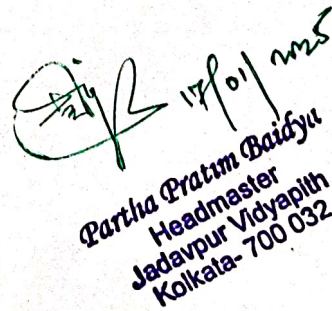 17/01/2025
Partha Pratim Baidya
Headmaster
Jadavpur Vidyapith
Kolkata- 700 032